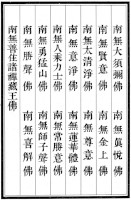 南無大須彌佛　南無眞悅佛
南無賢意佛　南無金上佛
南無太清淨佛　南無尊意佛
南無意淨佛　南無蓮華體佛
南無人乘力士佛　南無常勝意佛
南無勇猛山佛　南無師子聲佛
南無勝聲佛　南無喜解佛
南無善住諸禪藏王佛